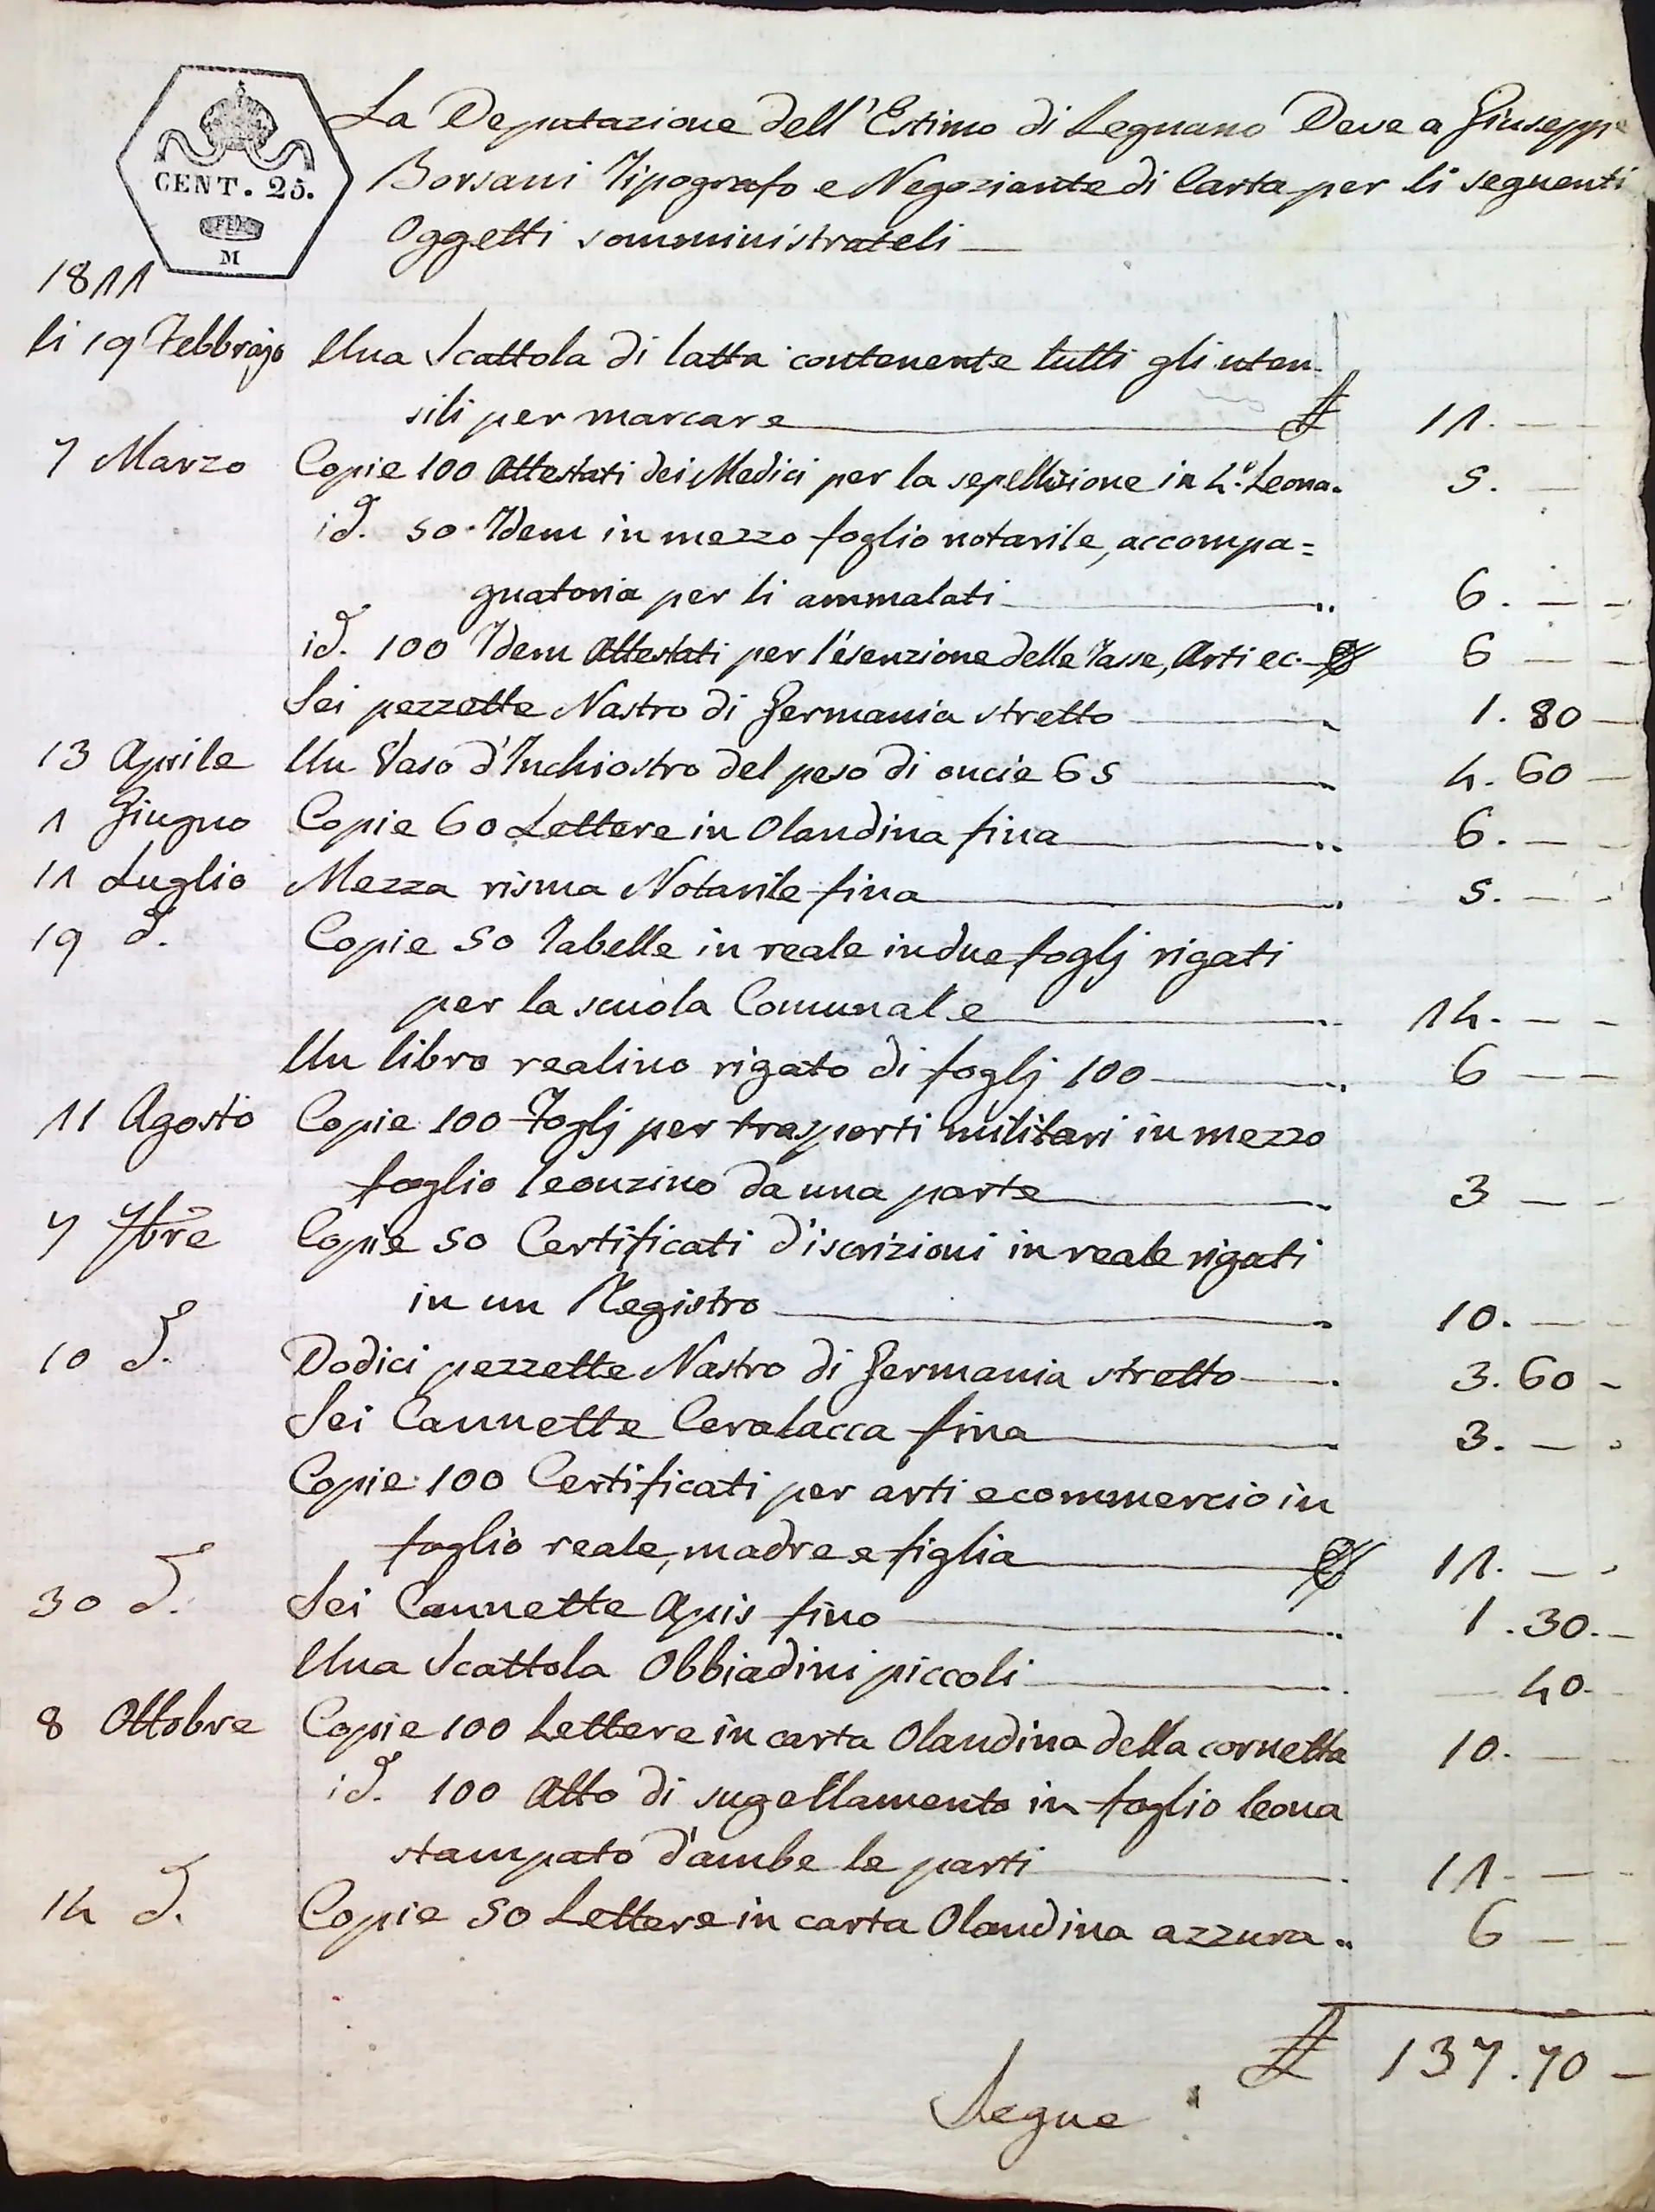 CENT. 25.
M
La Deputazione dell'Estimo di Legnano Deve a Giuseppe
Borsani Tipografo e Negoziante di Carta per li seguenti
Oggetti somministrateli —
1811
li 19 Febbrajo Una Scattola di latta contenente tutti gli uten-
sili per marcare — £ 11. —
7 Marzo Copie 100 Attestati dei Medici per la sepellizione in 4.° Leona. 5. —
id. 50. Idem in mezzo foglio notarile, accompa=
gnatoria per li ammalati — 6. —
id. 100 Idem Attestati per l'esenzione delle Tasse, Arti ec. — 6 —
Sei pezzette Nastro di Germania stretto — 1. 80 —
13 Aprile Un Vaso d'Inchiostro del peso di oncie 65 — 4. 60 —
1 Giugno Copie 60 Lettere in Olandina fina — 6. —
11 Luglio Mezza risma Notarile fina — 5. —
19 d. Copie 50 Tabelle in reale in due foglj rigati
per la scuola Comunale — 14. —
Un libro realino rigato di foglj 100 — 6 —
11 Agosto Copie 100 Foglj per trasporti militari in mezzo
foglio leonzino da una parte — 3 —
7 7bre Copie 50 Certificati d'iscrizioni in reale rigati
in un Registro — 10. —
10 d. Dodici pezzette Nastro di Germania stretto — 3. 60 -
Sei Cannette Ceralacca fina — 3. —
Copie 100 Certificati per arti e commercio in
foglio reale, madre e figlia — 11. —
30 d. Sei Cannette Apis fino — 1. 30. —
Una Scattola Obbiadini piccoli — 40.
8 Ottobre Copie 100 Lettere in carta Olandina della cornetta 10. —
id. 100 Atto di sugellamento in foglio leona
stampato d'ambe le parti — 11. —
14 d. Copie 50 Lettere in carta Olandina azzura .. 6 —
£ 137. 70 —
Segue